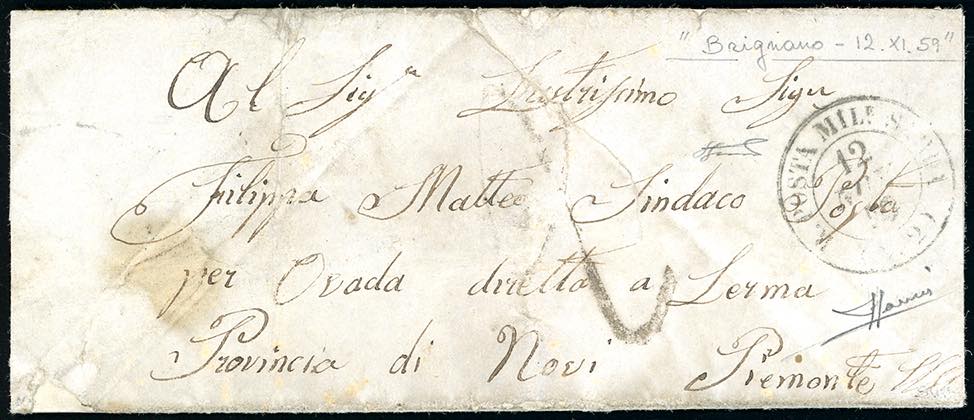 "Brignano - 12. XI. 59"
Al Sigr Lustrissimo Sigr
Filippa Matteo Sindaco Posta
per Ovada diretta a Lerma
Provincia di Novi Piemonte
R. POSTA MILE SARDA
12